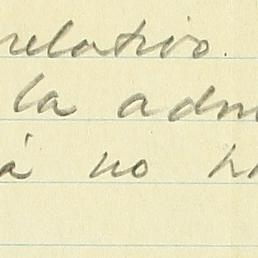 relativo.
la adm
á no h